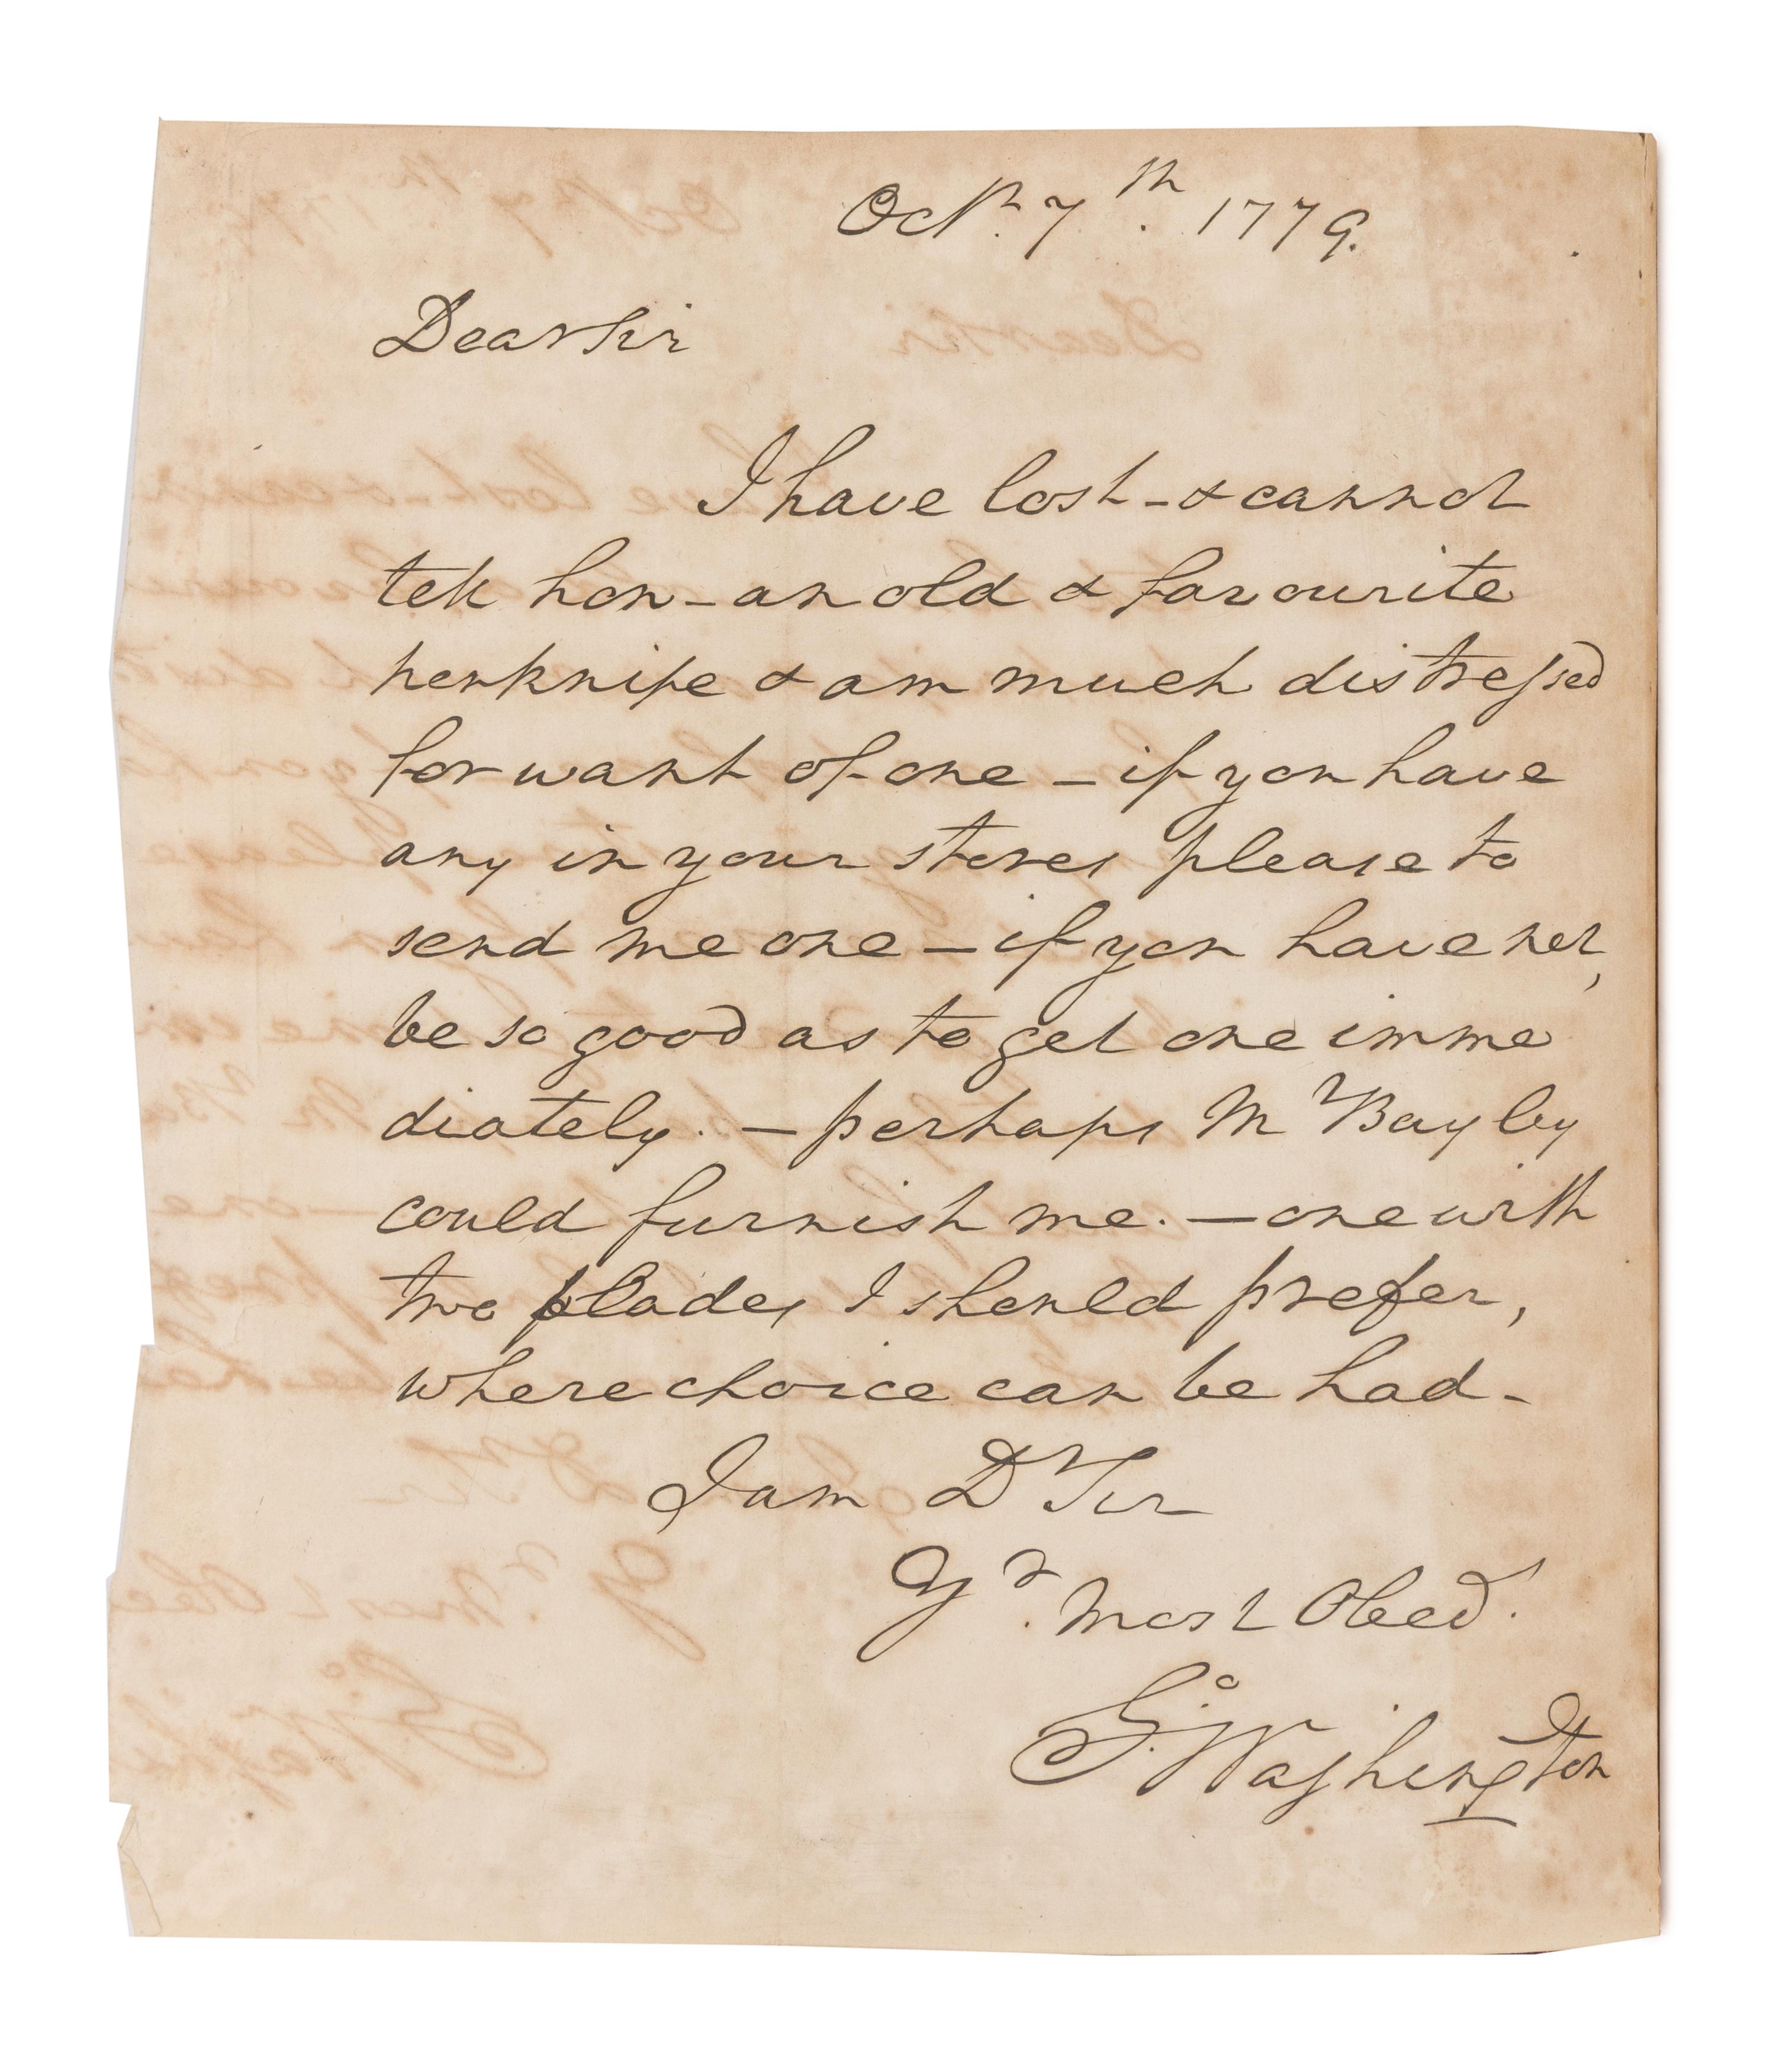 Octr. 7th. 1779.
Dear Sir
I have lost - & cannot
tell how - an old & favourite
penknife & am much distressed
for want of one - if you have
any in your stores please to
send me one - if you have not,
be so good as to get one imme
diately. - perhaps Mr Bayley
could furnish me. - one with
two blades I should prefer,
where choice can be had -
I am Dr Sir
Yr. most Obed.
Go. Washington